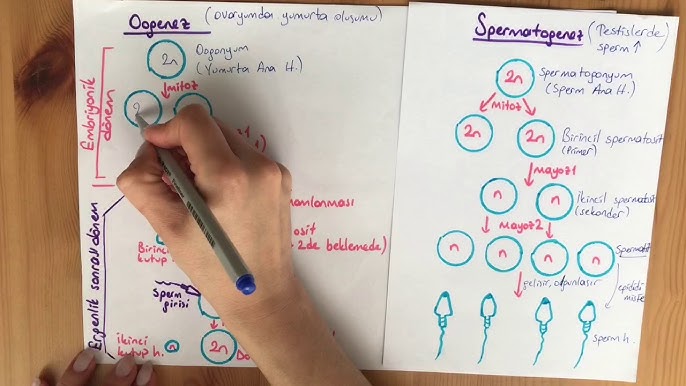 Oogenez (ovaryumda yumurta oluşumu)
Embriyonik dönem
2n
Oogonyum
(Yumurta Ana H.)
mitoz
Ergenlik sonrası dönem
Birinc
kutup
2de beklemede)
sperm girişi
ikinci
kutup h.
n
2n
Spermatogenez (Testislerde
sperm ↑
2n
Spermatogonyum
(Sperm Ana H.)
mitoz
2n
2n
Birincil spermatosit
(Primer)
mayoz1
n
n
İkincil spermatosit
(sekonder)
mayoz2
n
n
n
n
Spermatit
gelişir, olgunlaşır
epididi
miste
sperm h.